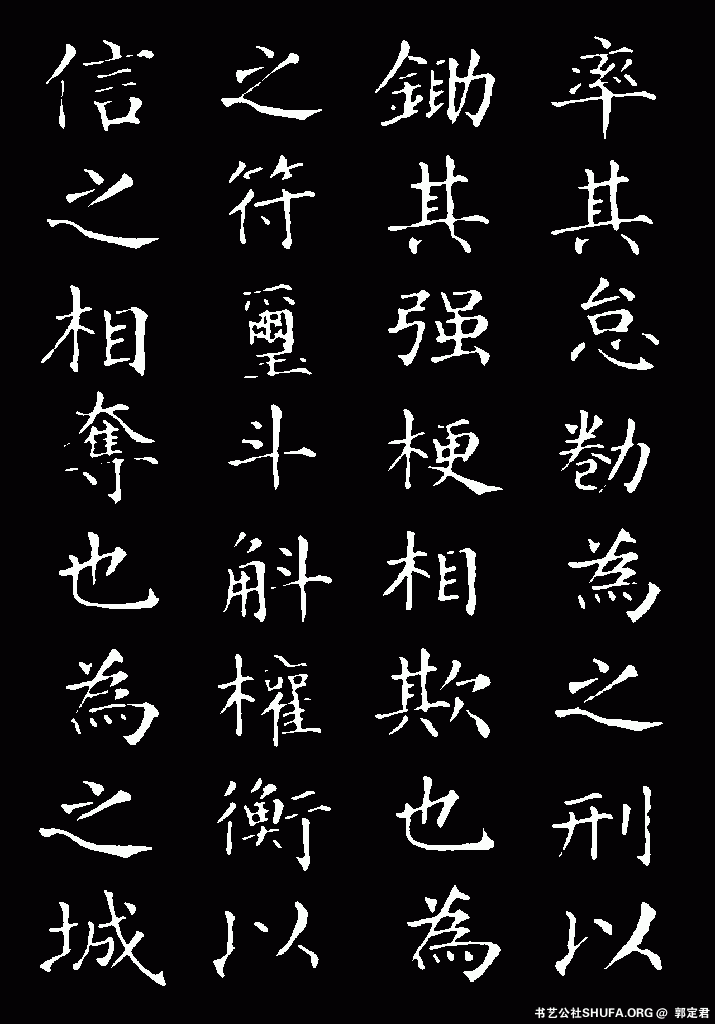 率其怠勌為之刑以
鋤其强梗相欺也為
之符璽斗斛權衡以
信之相奪也為之城
书艺公社SHUFA.ORG @ 郭定君